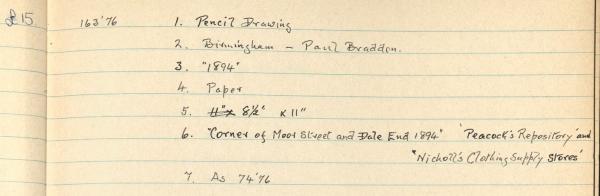 £15 163'76 1. Pencil Drawing
2. Birmingham - Paul Braddon.
3. "1894"
4. Paper
5. 11" x 8½" x 11"
6. "Corner of Moor Street and Dale End 1894" 'Peacock's Repository' and
'Nicholl's Clothing Supply Stores'
7. As 74'76